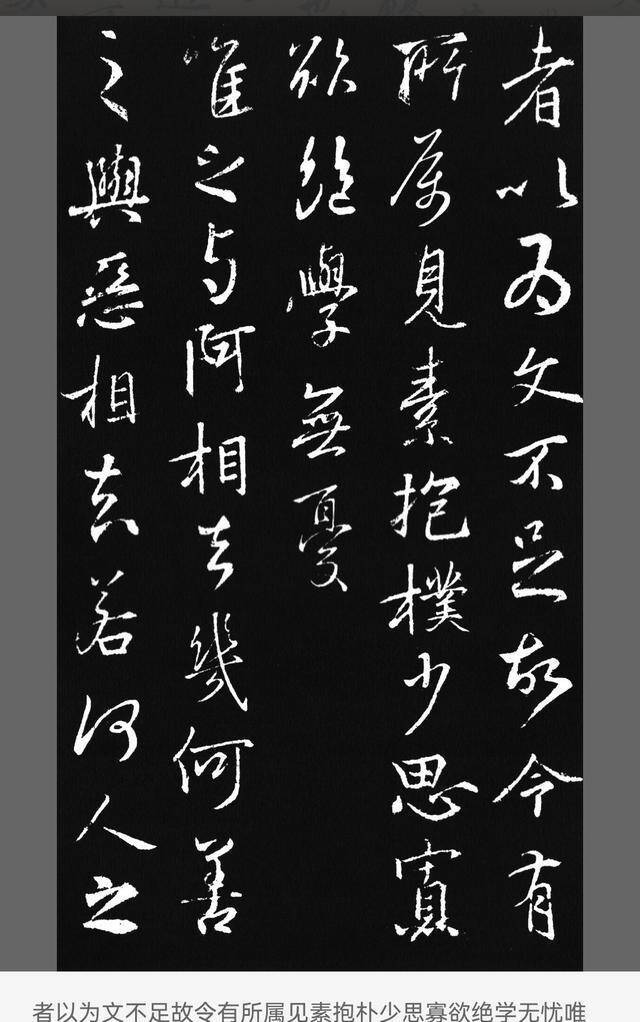 者以为文不足故令有
所属見素抱樸少思寡
欲絶學無憂
唯之与阿相去幾何善
之與惡相去若何人之
者以为文不足故令有所属见素抱朴少思寡欲绝学无忧唯